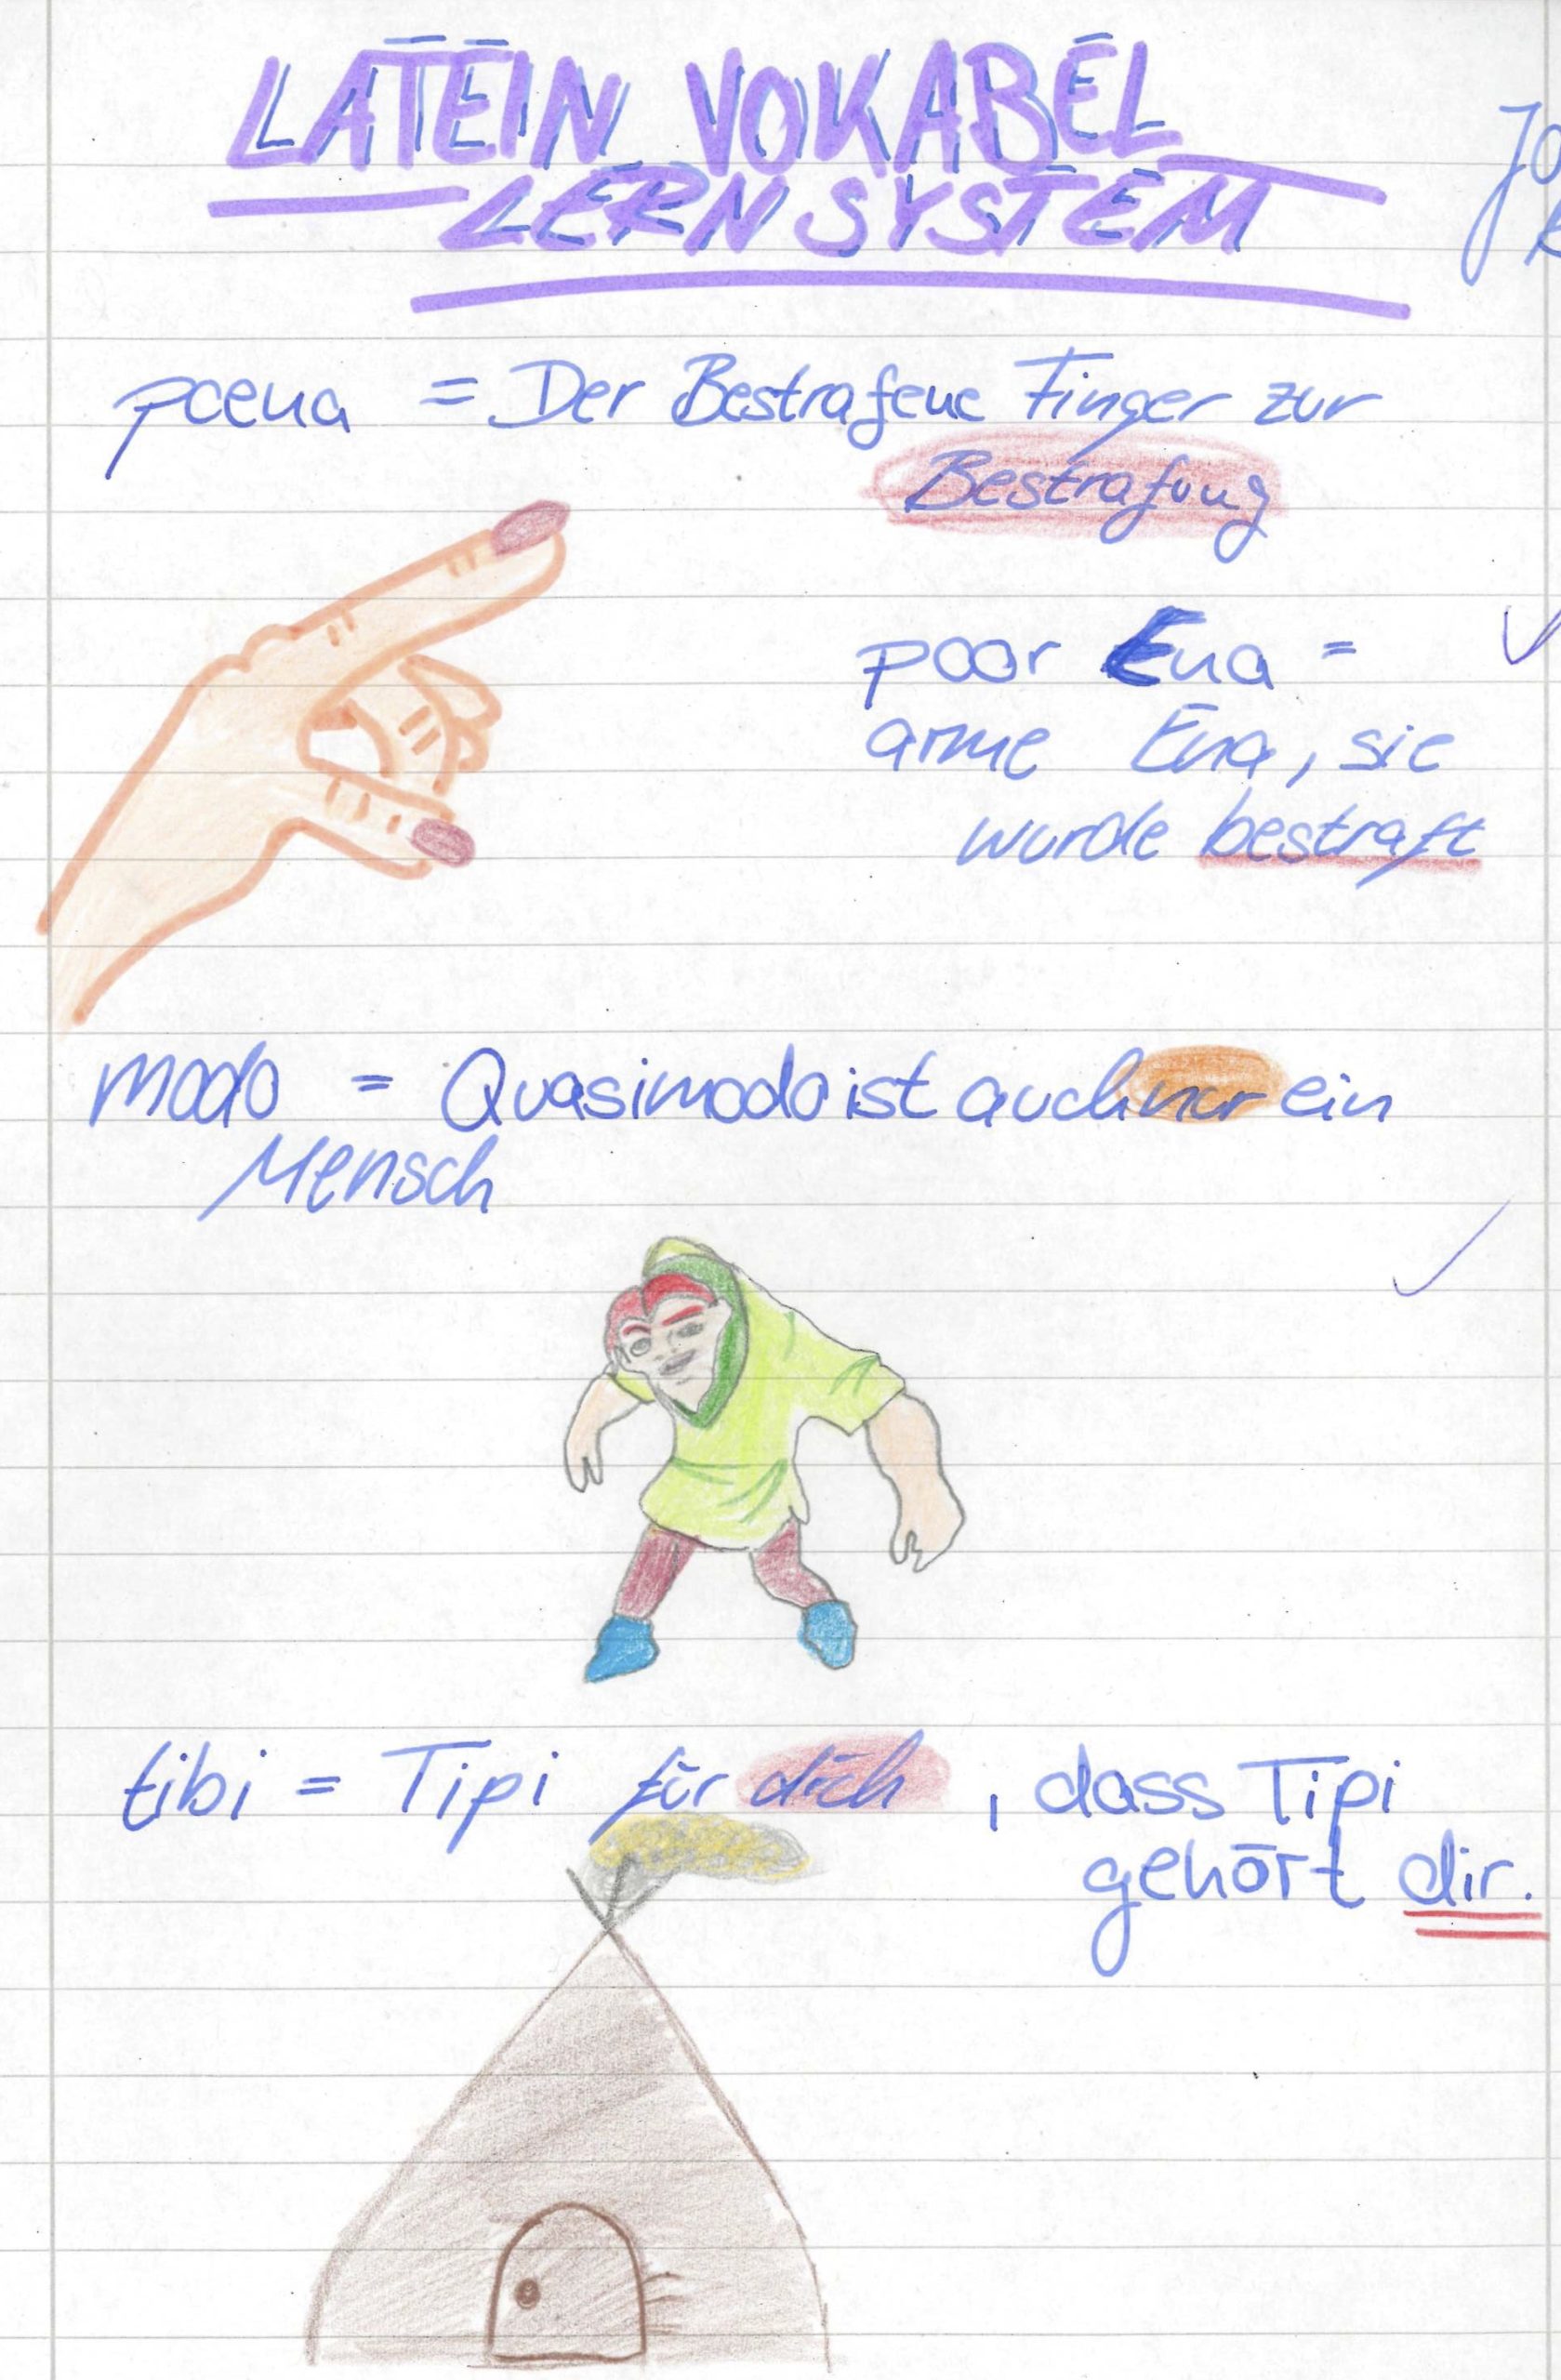 LATEIN VOKABEL
LERNSYSTEM
poena = Der Bestrafene Finger zur
Bestrafung
poor Ena =
arme Ena, sie
wurde bestraft
modo = Quasimodo ist auch nur ein
Mensch
tibi = Tipi für dich, dass Tipi
gehört dir.